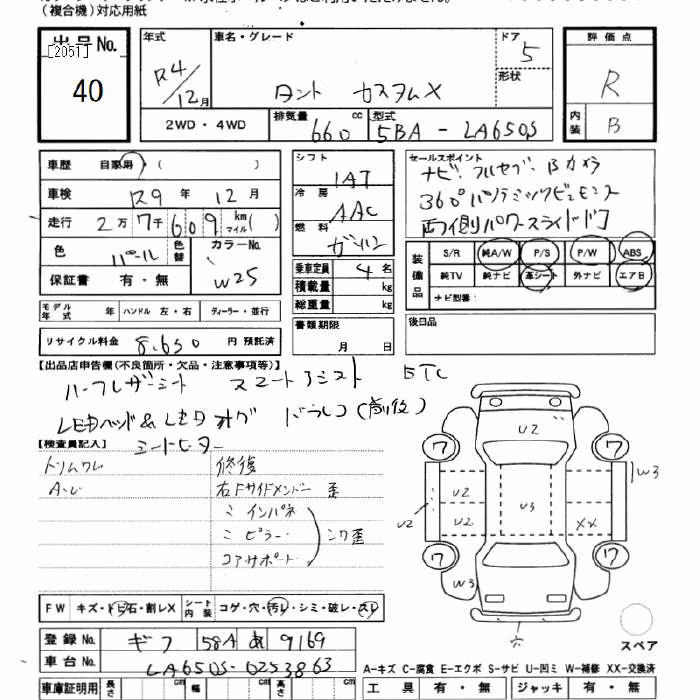 (複合機)対応用紙
出品No.
[2051]
40
年式 R4/12月
車名・グレード タント カスタムX
ドア 5
形状
2WD・4WD
排気量 660 cc
型式 5BA - LA650S
評価点 R
内装 B
車歴 自家用・( )
車検 R9年 12月
走行 2万7千609 km マイル( )
色 パール 色替 カラーNo. W25
保証書 有・無
モデル年式 年 ハンドル 左・右 ディーラー・並行
リサイクル料金 8,650 円 預託済
シフト IAT
冷房 AAC
燃料 ガソリン
乗車定員 4 名
積載量 kg
総重量 kg
書類期限 月 日
セールスポイント
ナビ・フルセグ・Bカメラ
360°パノラミックビューモニター
両側パワースライドドア
装備品 S/R 純A/W P/S P/W ABS
純TV 純ナビ 革シート 外ナビ エアB
ナビ型番:
後日品
【出品店申告欄(不良箇所・欠品・注意事項等)】
ハーフレザーシート スマートアシスト ETC
LEDヘッド&LEDフォグ ドラレコ(前後)
シートヒーター
【検査員記入】
トリムワレ
A・U
修復
右Fサイドメンバー 歪
〃 インパネ
〃 ピラー
コアサポート
シワ歪
U2
ワ
ワ
W3
U2
U2
U2
U3
XX
ワ
ワ
W3
スペア
FW キズ・トビ石・割レX シート内装 コゲ・穴・汚レ・シミ・破レ・スレ
登録No. ギフ 584 あ 9169
車台No. LA650S-0253863
車庫証明用 長さ cm 幅 cm 高さ cm
A-キズ C-腐食 E-エクボ S-サビ U-凹ミ W-補修 XX-交換済
工具 有・無 ジャッキ 有・無